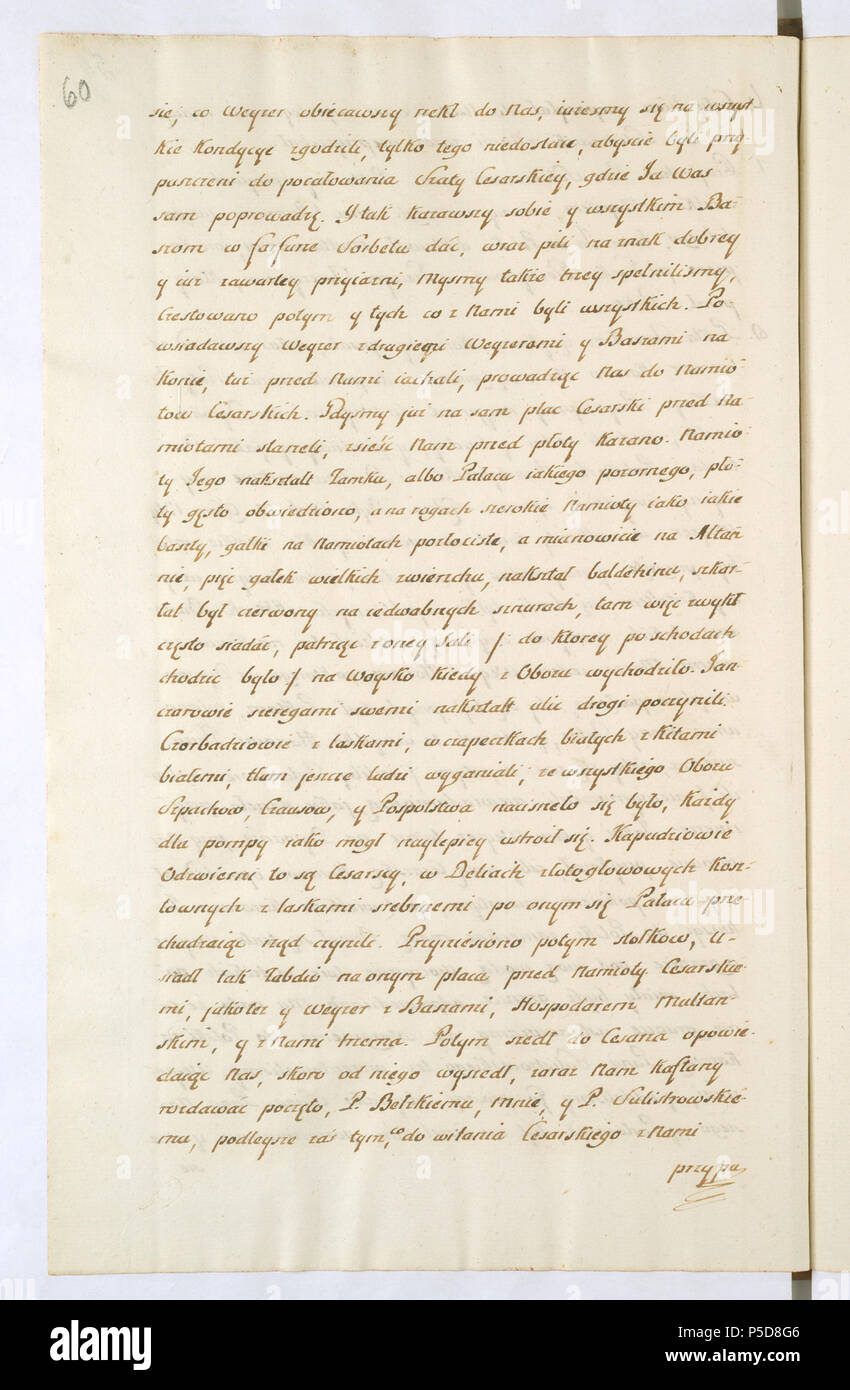 60
się, co Wezyr obiecawszy rzekł do Nas, iużesmy się na wszyst
kie Kondycye zgodzili, tylko tego niedostaie, abyscie byli przy
puszczeni do pocałowania Szaty Cesarskiey, gdzie Ja was
sam poprowadzę. Y tak kazawszy sobie y wszystkim Ba-
szom w farfurze Sorbetu dać, wraz pili na znak dobrey
y iuż zawartey przyiazni, Mysmy także trzey spełnilismy,
Częstowano potym y tych co z Nami byli wszystkich. Po-
wsiadawszy Wezyr z drugiemi Wezyrami y Baszami na
Konie, tuż przed Nami iachali, prowadząc Nas do Namio-
tow Cesarskich. Gdysmy już na sam plac Cesarski przed Na
miotami stanęli, zsieść Nam przed płoty Kazano. Namio-
ty Jego nakształt Zamku, albo Pałacu iakiego pozornego, pło-
ty gęsto obwiedziono, a na rogach szerokie Namioty iako iakie
baszty, gałki na Namiotach pozłociste, a mianowicie na Altan
nie, pięc gałek wielkich zwierzchu, nakształ baldekinu, szkar-
łat był czerwony na iedwabnych sznurach, tam więc zwykł
często siadać, patrząc z oney Sali /: do ktorey po schodach
chodzic było :/ na Woysko kiedy z Obozu wychodziło. Jan-
czarowie szeregami swemi nakształt ulic drogi poczynili.
Czorbadziowie z laskami, w czapeczkach białych z kitami
białemi, tłum jeszcze ludzi wyganiali, ze wszystkiego Obozu
Szpachow, Czausow, y Pospolstwa nacisneło się było, Każdy
dla pompy iako mogł naylepiey ustroił się. Kapudziowie
Odzwierni to są Cesarscy, w Deliach złotogłowowych kosz-
townych z laskami srebrnemi po onym się Pałacu prze-
chadzaiąc rząd czynili. Przyniesiono potym stołkow, U-
siadł tak Zabdio na onym placu przed Namioty Cesarskie-
mi, jako też y Wezyr z Baszami, Hospodarem Multan-
skim, y z Nami trzema. Potym szedł do Cesarza opowie-
daiąc Nas, skoro od niego wyszedł, zaraz Nam Kaftany
rozdawać poczęto, P. Bełzkiemu, Mnie, y P. Sulistrowskie-
mu, podleysze zaś tym, co do witania Cesarskiego z Nami
przypu
alamy
P5D8G6
www.alamy.com